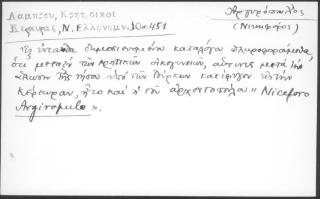 Λάμπρου, Κρητ. οικοι
Κερκυρας, Ν. Ελληνομν. 10 σ. 451
Αργυρόπουλος
(Νικηφόρος)
Ἐξ ἐνταῦθα δημοσιευομένου καταλόγου πληροφορούμεθα,
ὅτι μεταξὺ τῶν κρητικῶν οἰκογενειῶν, αἵτινες μετὰ τὴν
ἅλωσιν τῆς νήσου ὑπὸ τῶν Τούρκων κατέφυγον εἰς τὴν
Κέρκυραν, ἦτο καὶ ἡ τοῦ ἀρχοντοπούλου « Niceforo
Argiropulo ».